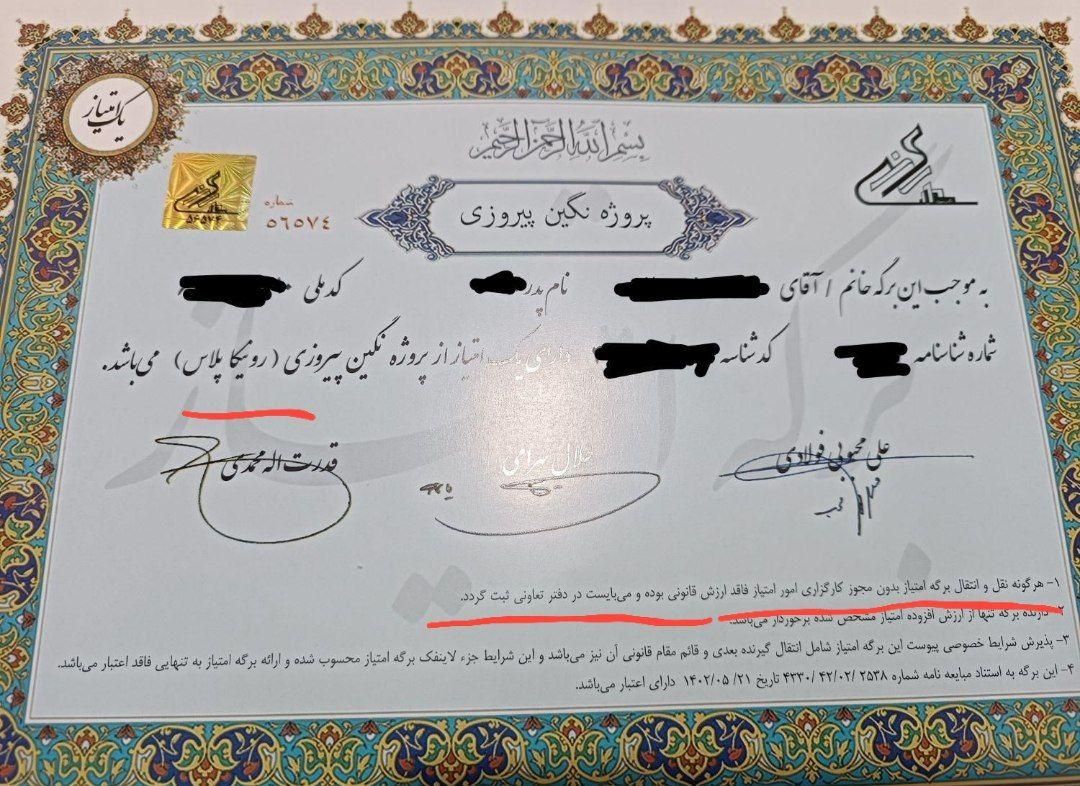 یک امتیاز
بِسْمِ اللَّهِ الرَّحْمَنِ الرَّحِيمِ
۵۶۵۷۴
شماره
۵۶۵۷۴
پروژه نگین پیروزی
به موجب این برگه خانم / آقای نام پدر کد ملی
شماره شناسنامه کد شناسه دارای یک امتیاز از پروژه نگین پیروزی (رونیکا پلاس) می‌باشد.
علی محبوبی فولادی
جلال بهرامی
قدرت اله محمدی
۱- هرگونه نقل و انتقال برگه امتیاز بدون مجوز کارگزاری امور امتیاز فاقد ارزش قانونی بوده و می‌بایست در دفتر تعاونی ثبت گردد.
۲- دارنده برگه تنها از ارزش افزوده امتیاز مشخص شده برخوردار می‌باشد.
۳- پذیرش شرایط خصوصی پیوست این برگه امتیاز شامل انتقال گیرنده بعدی و قائم مقام قانونی آن نیز می‌باشد و این شرایط جزء لاینفک برگه امتیاز محسوب شده و ارائه برگه امتیاز به تنهایی فاقد اعتبار می‌باشد.
۴- این برگه به استناد مبایعه نامه شماره ۲۵۳۸ /۴۲/۰۲ /۴۳۳۰ تاریخ ۲۱/ ۰۵/ ۱۴۰۲ دارای اعتبار می‌باشد.